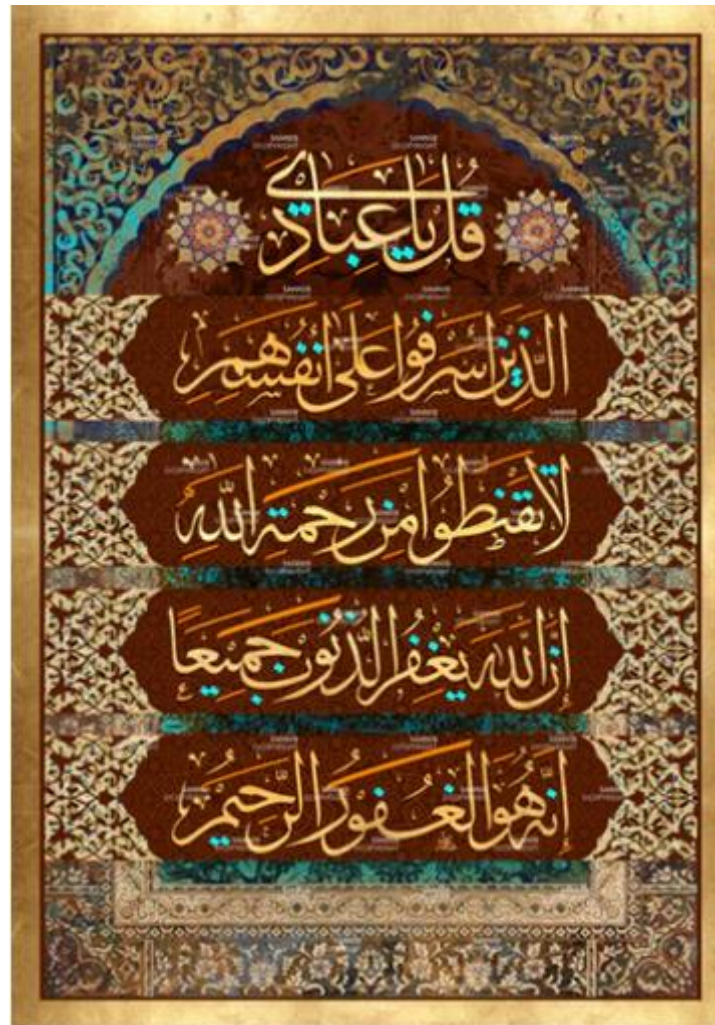 قُل يَا عِبَادِيَ
الَّذِينَ أَسْرَفُوا عَلَىٰ أَنْفُسِهِمْ
لَا تَقْنَطُوا مِنْ رَحْمَةِ اللَّهِ
إِنَّ اللَّهَ يَغْفِرُ الذُّنُوبَ جَمِيعًا
إِنَّهُ هُوَ الْغَفُورُ الرَّحِيمُ